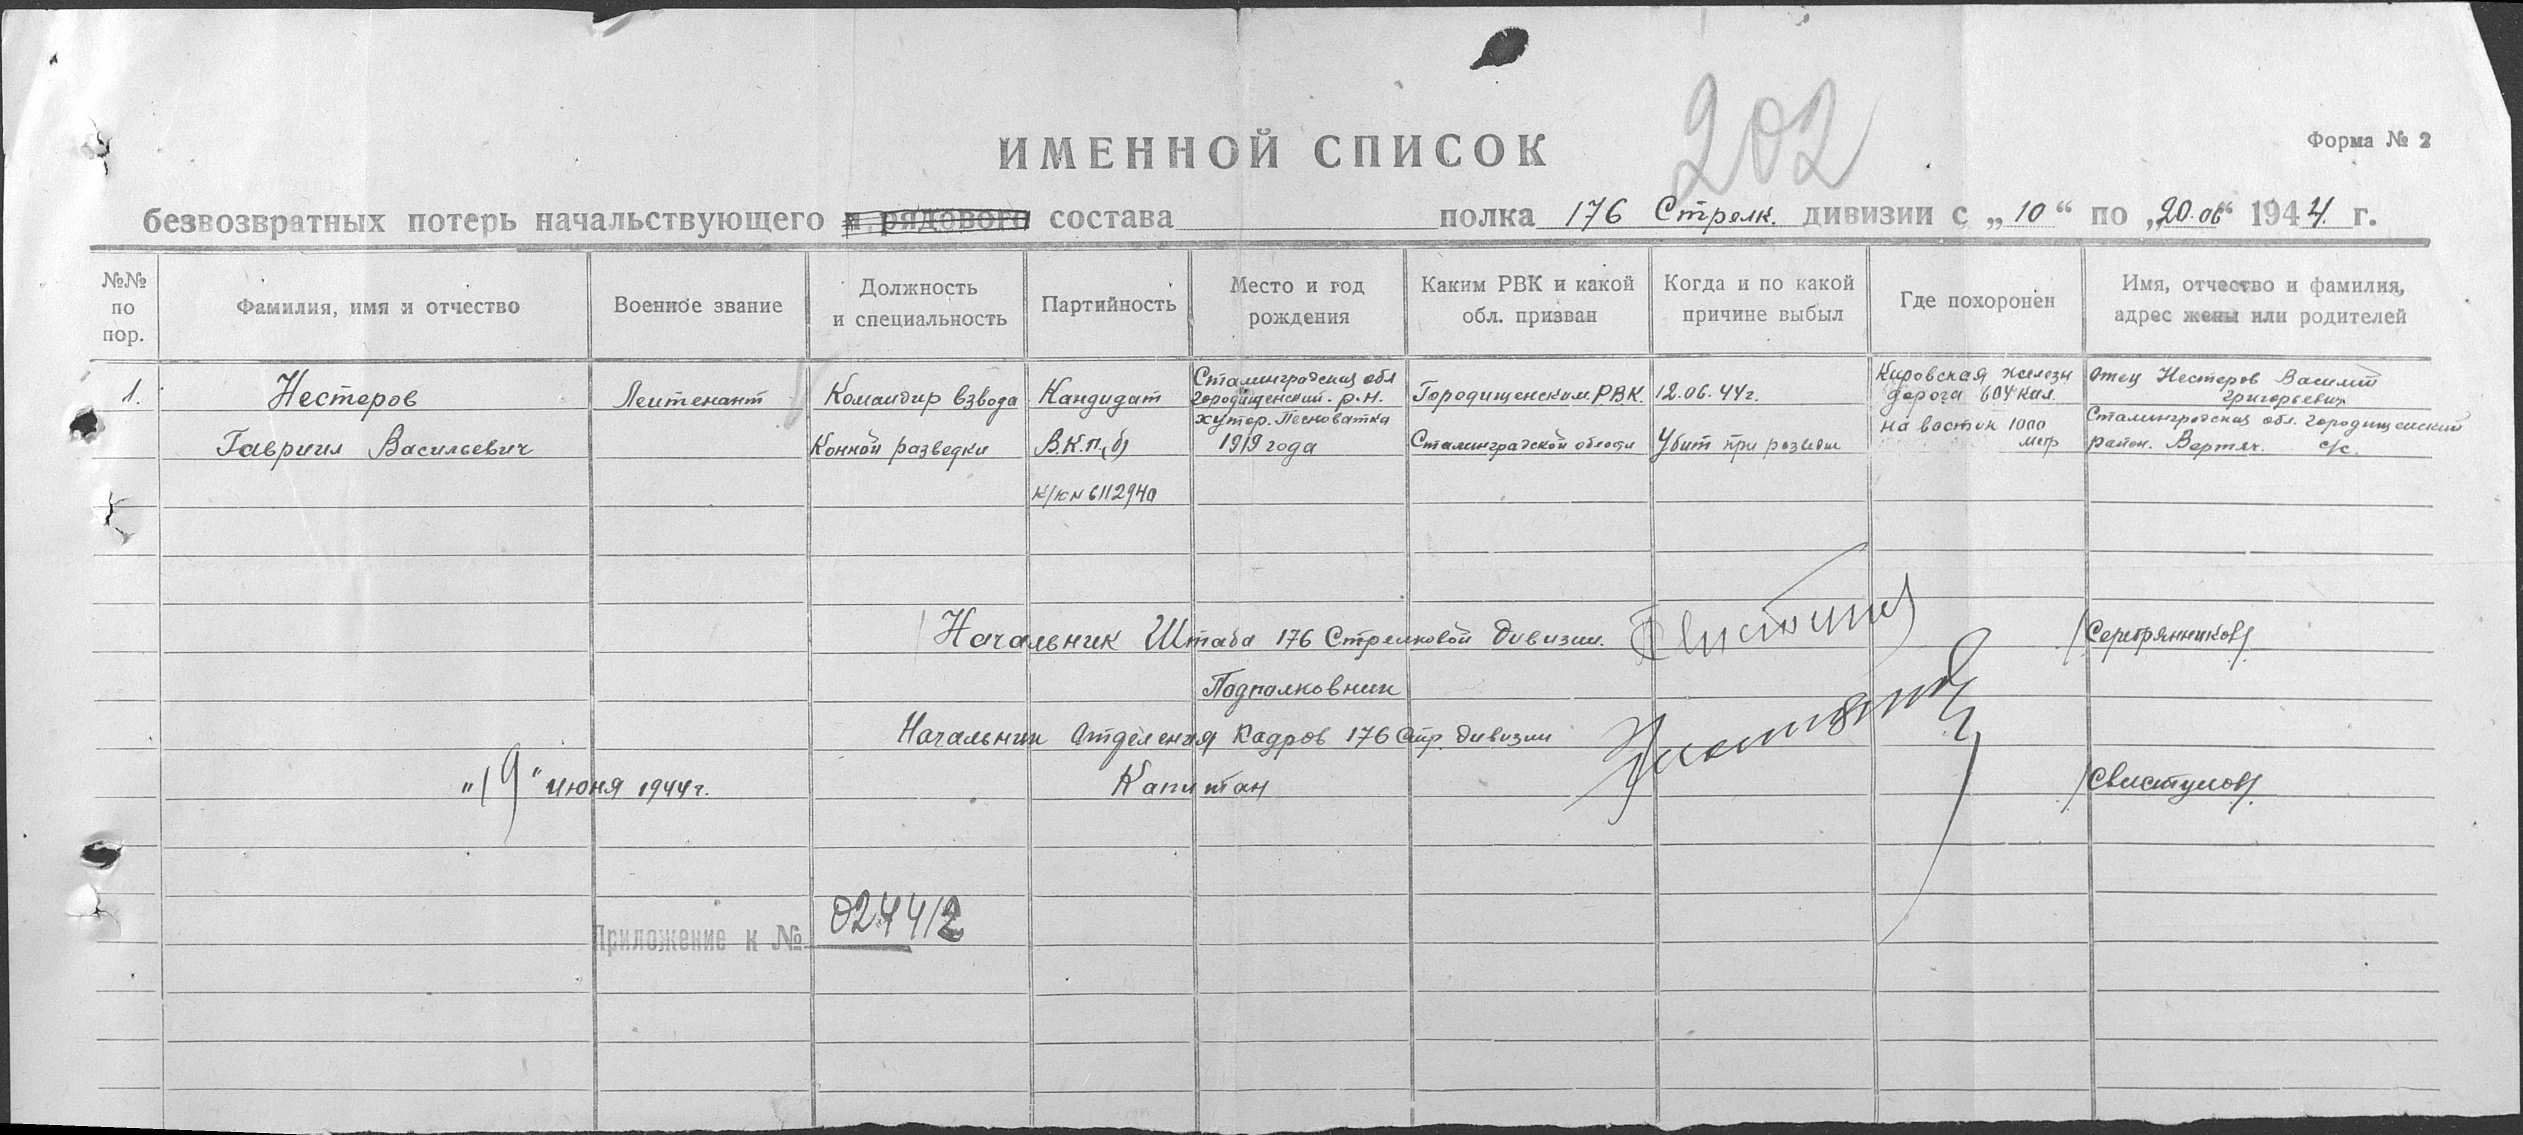 202
ИМЕННОЙ СПИСОК
Форма № 2
безвозвратных потерь начальствующего и рядового состава полка 176 Стрелк. дивизии с „10“ по „20.06“ 1944 г.
№№ по пор.
Фамилия, имя и отчество
Военное звание
Должность и специальность
Партийность
Место и год рождения
Каким РВК и какой обл. призван
Когда и по какой причине выбыл
Где похоронен
Имя, отчество и фамилия, адрес жены или родителей
1.
Нестеров
Гавриил Васильевич
Лейтенант
Командир взвода
Конной разведки
Кандидат
В.К.П.(б)
к/к № 6112940
Сталинградская обл
Городищенский р.н.
хутор. Песковатка
1919 года
Городищенским РВК.
Сталинградской области
12.06.44г.
Убит при разведке
Кировская железн
дорога 604 кил.
на восток 1000
метр
отец Нестеров Василий
Григорьевич
Сталинградская обл. Городищенский
район. Вертяч. с/с.
Начальник Штаба 176 Стрелковой Дивизии.
/Серебрянников/
Подполковник
Начальник Отделения Кадров 176 Стр. дивизии
„19“ июня 1944г.
Капитан
/Свистунов/
Приложение к № 024412